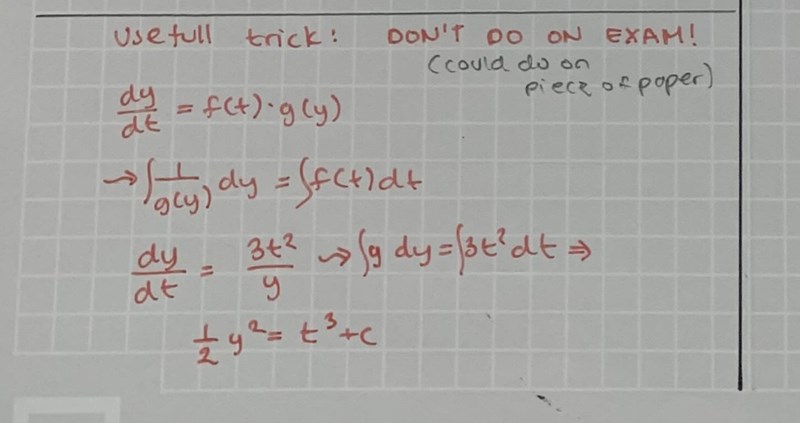 Usefull trick: DON'T DO ON EXAM!
(could do on
piece of paper)
dy/dt = f(t)·g(y)
→ ∫ 1/g(y) dy = ∫f(t)dt
dy/dt = 3t²/y → ∫y dy = ∫3t² dt ⇒
1/2 y² = t³+c